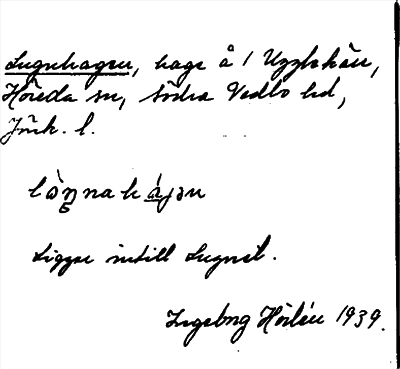 Lugnhagen, hage å 1 Ugglekärr,
Höreda sn, Södra Vedbo hd,
Jönk. l.
Ligger intill Lugnet.
Ingeborg Hörlén 1939.